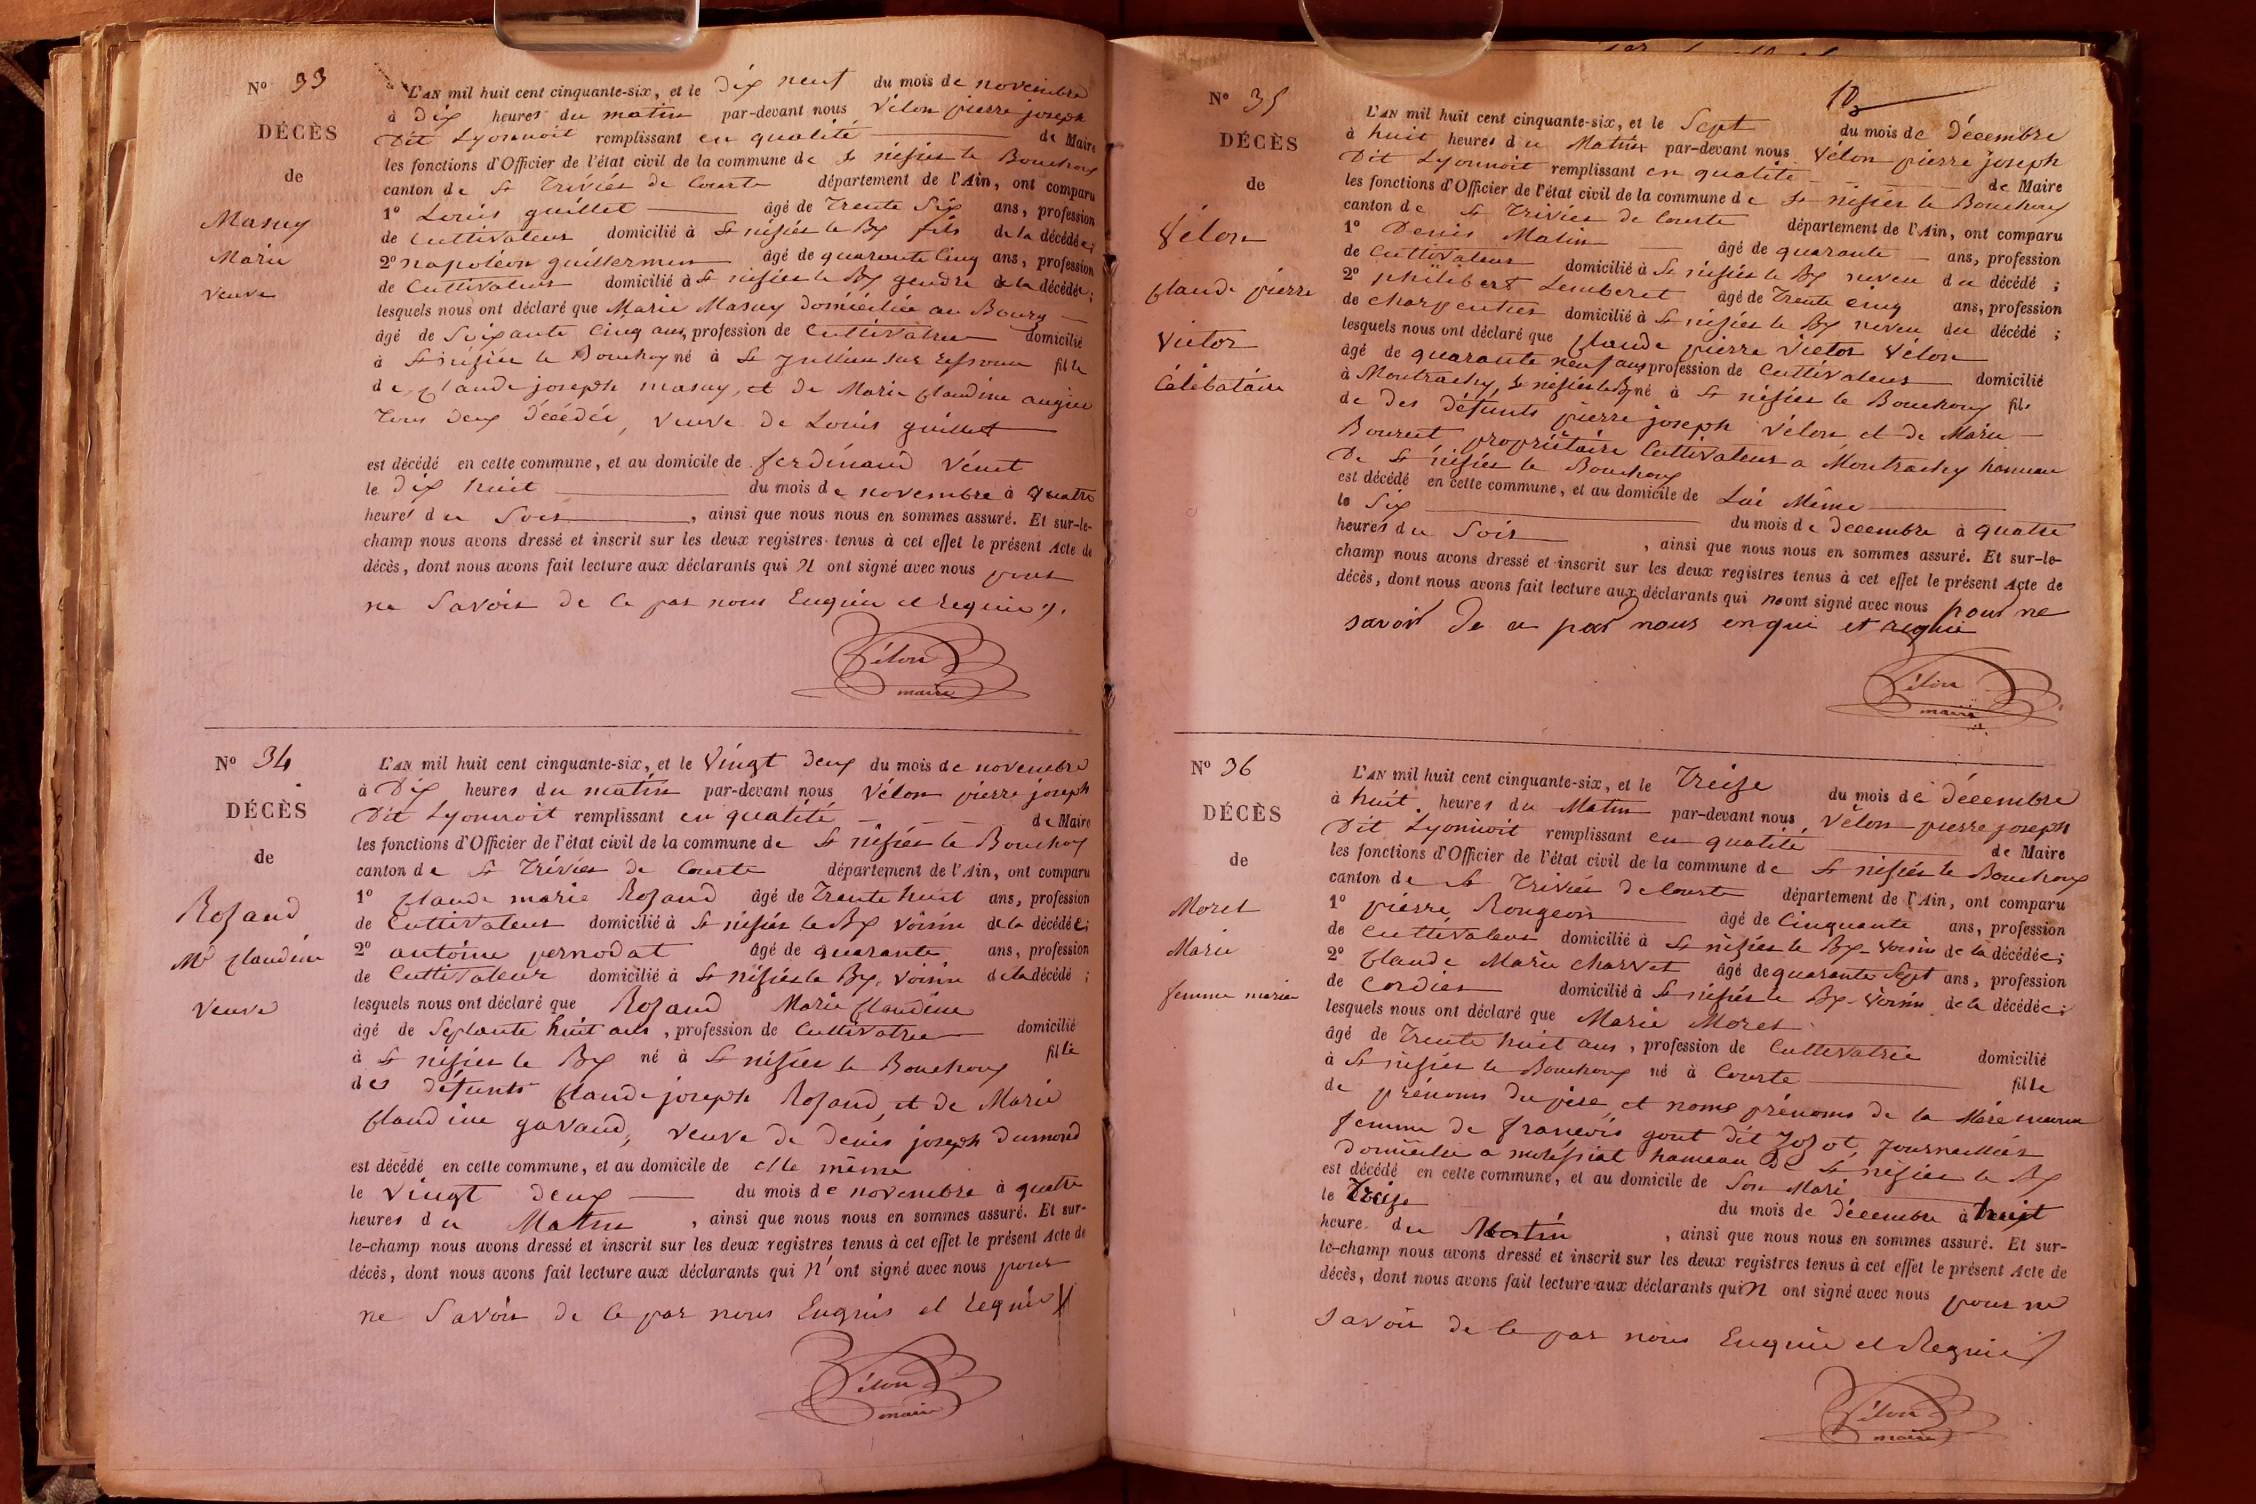 Nº 33
DÉCÈS
de
Masuy
Marie
veuve
L'AN mil huit cent cinquante-six, et le dix neuf du mois de novembre
à dix heures du matin par-devant nous Vélon pierre joseph
Dit Lyonnoit remplissant en qualité de Maire
les fonctions d'Officier de l'état civil de la commune de St nisier le Bouchoux
canton de St Trivier de Courte département de l'Ain, ont comparu
1º Louis guillet âgé de Trente Six ans, profession
de Cultivateur domicilié à St nisier le Bx fils de la décédée;
2º napoléon guillermin âgé de quarante Cinq ans, profession
de Cultivateur domicilié à St nisier le Bx gendre de la décédée;
lesquels nous ont déclaré que Marie Masuy domiciliée au Bourg
âgé de Soixante Cinq ans, profession de Cultivatrice domicilié
à St nisier le Bouchoy né à St Jullien sur fille
de Claude joseph masuy, et de Marie Claudine augier
Tous deux décédés, veuve de Louis guillet
est décédé en cette commune, et au domicile de ferdinand Vénet
le dix huit du mois de novembre à quatre
heures du Soir, ainsi que nous nous en sommes assuré. Et sur-le-
champ nous avons dressé et inscrit sur les deux registres tenus à cet effet le présent Acte de
décès, dont nous avons fait lecture aux déclarants qui N ont signé avec nous pour
ne Savoir de Ce par nous Enquis et requis.
Vélon
maire
Nº 34
DÉCÈS
de
Rozand
Me Claudine
Veuve
L'AN mil huit cent cinquante-six, et le Vingt deux du mois de novembre
à Dix heures du matin par-devant nous Vélon pierre joseph
Dit Lyonnoit remplissant en qualité de Maire
les fonctions d'Officier de l'état civil de la commune de St nisier le Bouchoy
canton de St Trivier de Courte département de l'Ain, ont comparu
1º Claude marie Rozand âgé de Trente huit ans, profession
de Cultivateur domicilié à St nisier le Bx voisin de la décédée;
2º antoine pernodat âgé de quarante ans, profession
de Cultivateur domicilié à St nisier le Bx, voisin de la décédé;
lesquels nous ont déclaré que Rozand Marie Claudine
âgé de Septante huit ans, profession de Cultivatrice domicilié
à St nisier le Bx né à St nisier le Bouchoux fille
des défunts Claude joseph Rozand, et de Marie
Claudine gavand, veuve de denis joseph dumond
est décédé en cette commune, et au domicile de elle même
le vingt deux du mois de novembre à quatre
heures du Matin, ainsi que nous nous en sommes assuré. Et sur-
le-champ nous avons dressé et inscrit sur les deux registres tenus à cet effet le présent Acte de
décès, dont nous avons fait lecture aux déclarants qui n' ont signé avec nous pour
ne Savoir de Ce par nous Enquis et requis
Vélon
maire
Nº 35
DÉCÈS
de
Vélon
Claude pierre
Victor
Célibataire
L'AN mil huit cent cinquante-six, et le Sept du mois de décembre
à huit heures du Matin par-devant nous Vélon pierre joseph
Dit Lyonnoit remplissant en qualité de Maire
les fonctions d'Officier de l'état civil de la commune de St nisier le Bouchoux
canton de St Trivier de Courte département de l'Ain, ont comparu
1º Denis Matin âgé de quarante ans, profession
de Cultivateur domicilié à St nisier le Bx neveu du décédé;
2º philibert Lemberet âgé de Trente cinq ans, profession
de charpentier domicilié à St nisier le Bx neveu du décédé;
lesquels nous ont déclaré que Claude pierre Victor Vélon
âgé de quarante neuf ans profession de Cultivateur domicilié
à Montrachy, St nisier le Bx né à St nisier le Bouchoux fils
de des défunts pierre joseph Vélon et de Marie
Bouret propriétaire Cultivateur a Montrachy hameau
De St nisier le Bouchoux
est décédé en cette commune, et au domicile de Lui Même
le Six du mois de decembre à quatre
heures du Soir, ainsi que nous nous en sommes assuré. Et sur-le-
champ nous avons dressé et inscrit sur les deux registres tenus à cet effet le présent Acte de
décès, dont nous avons fait lecture aux déclarants qui n ont signé avec nous pour ne
savoir de ce par nous enqui et requi
Vélon
maire
Nº 36
DÉCÈS
de
Moret
Marie
femme mariée
L'AN mil huit cent cinquante-six, et le Treize du mois de décembre
à huit heures du Matin par-devant nous Vélon pierre joseph
Dit Lyonnoit remplissant en qualité de Maire
les fonctions d'Officier de l'état civil de la commune de St nisier le Bouchoux
canton de St Trivier de Courte département de l'Ain, ont comparu
1º pierre Rongeon âgé de Cinquante ans, profession
de Cultivateur domicilié à St nisier le Bx voisin de la décédée;
2º Claude Marie Charvet âgé de quarante Sept ans, profession
de Cordier domicilié à St nisier le Bx voisin de la décédée;
lesquels nous ont déclaré que Marie Moret
âgé de Trente huit ans, profession de Cultivatrice domicilié
à St nisier le Bouchoux né à Courte fille
de prénoms du père et noms prénoms de la Mère
femme de francois gout dit Zozot, Journallier
domiciliée a hameau De St nisier le Bx
est décédé en cette commune, et au domicile de Son Mari
le Treize du mois de décembre à huit
heure du Matin, ainsi que nous nous en sommes assuré. Et sur-
le-champ nous avons dressé et inscrit sur les deux registres tenus à cet effet le présent Acte de
décès, dont nous avons fait lecture aux déclarants qui N ont signé avec nous pour ne
savoir de Ce par nous Enquis et Requis
Vélon
maire